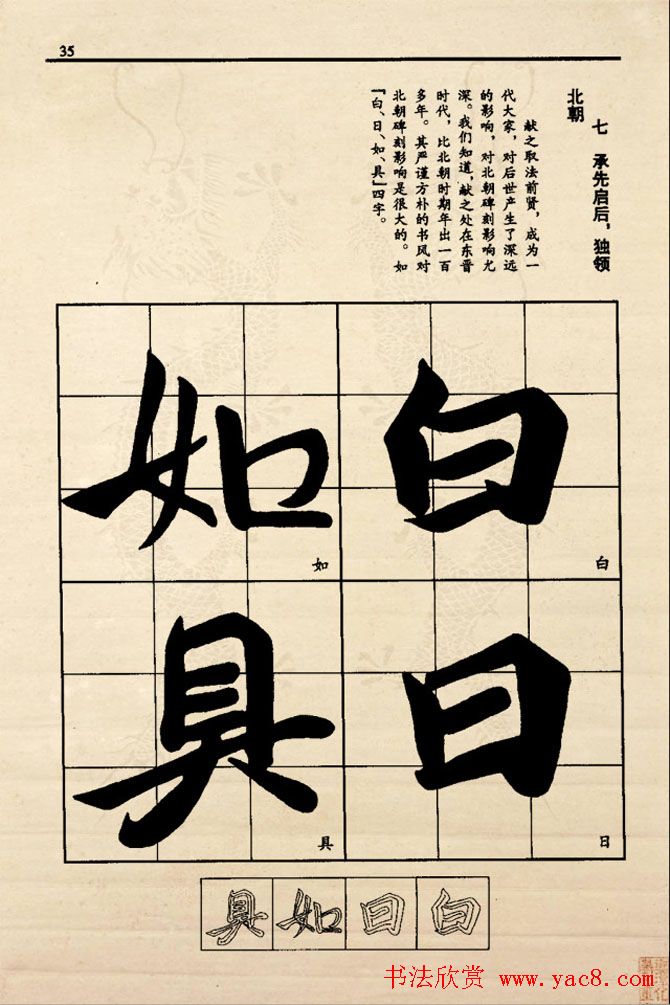 35
七 承先启后，独领
北朝
献之取法前贤，成为一
代大家，对后世产生了深远
的影响，对北朝碑刻影响尤
深。我们知道，献之处在东晋
时代，比北朝时期年出一百
多年。其严谨方朴的书风对
北朝碑刻影响是很大的。如
『白、日、如、具』四字。
白
如
白
如
日
具
日
具
具如日白
书法欣赏 www.yac8.com